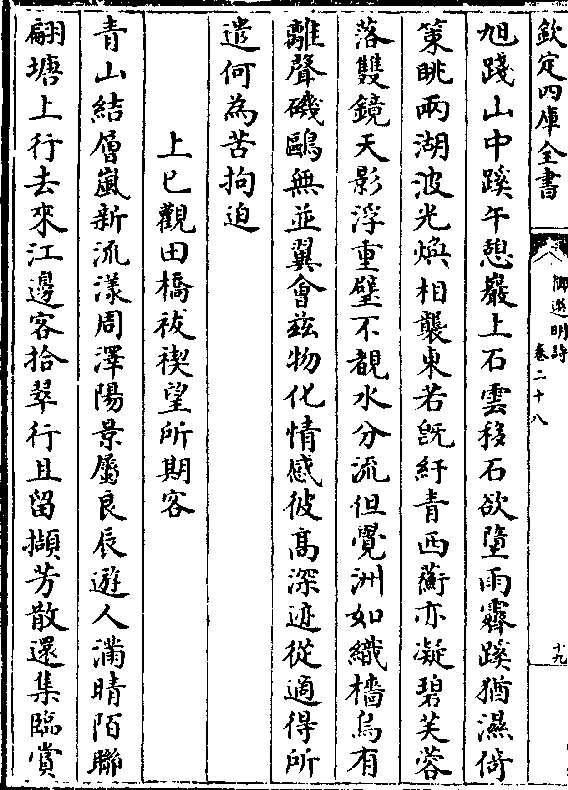 欽定四庫全書
御選明詩
卷二十八
十九
旭踐山中蹊午憩巖上石雲移石欲墮雨霽蹊猶濕倚
策眺兩湖波光煥相襲東若既紆青西蘅亦凝碧芙蓉
落雙鏡天影浮重璧不覩水分流但覺洲如織檣烏有
離聲磯鷗無並翼會兹物化情感彼髙深迹從適得所
遣何為苦拘迫
上巳觀田橋袚禊望所期客
青山結層嵐新流漾周澤陽景屬良辰遊人滿晴陌聯
翩塘上行去來江邊客拾翠行且留擷芳散還集臨賞